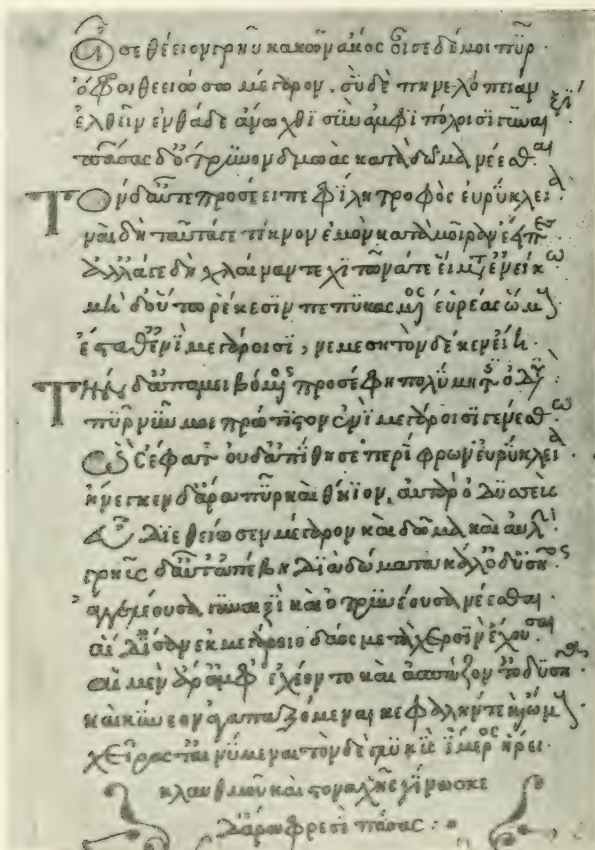 οἶσε θέειον γρηῢ κακῶν ἄκος οἶσε δέ μοι πῦρ.
ὄφρα θεειώσω μέγαρον, σὺ δὲ πηνελόπειαν
ἐλθεῖν ἐνθάδε ἄνωχθι σὺν ἀμφιπόλοισι γυναιξὶ
πάσας δ' ὄτρυνον δμωὰς κατὰ δῶμα νέεσθαι
Τὸν δ' αὖτε προσέειπε φίλη τροφὸς εὐρύκλεια.
ναὶ δὴ ταῦτά γε τέκνον ἐμὸν κατὰ μοῖραν ἔειπες
ἀλλ' ἄγε δὴ χλαῖναν τε χιτῶνά τε εἵματ' ἐνείκω
μὴ δ' οὕτω ῥάκεσιν πεπυκασμένος εὐρέας ὤμους
ἕσταθ' ἐνὶ μεγάροισι, νεμεσητὸν δέ κεν εἴη.
Τὴν δ' ἀπαμειβόμενος προσέφη πολύμητις ὀδυσσεύς
πῦρ νῦν μοι πρώτιστον ἐνὶ μεγάροισι γενέσθω
ὣς ἔφατ' οὐδ' ἀπίθησε περίφρων εὐρύκλεια.
ἤνεγκεν δ' ἄρα πῦρ καὶ θήϊον, αὐτὰρ ὀδυσσεὺς
εὖ διεθείωσεν μέγαρον καὶ δῶμα καὶ αὐλήν
γρηῢς δ' αὖτ' ἀπέβη διὰ δώματα κάλ' ὀδυσῆος
ἀγγελέουσα γυναιξὶ καὶ ὀτρυνέουσα νέεσθαι.
αἱ δ' ἴσαν ἐκ μεγάροιο δάος μετὰ χερσὶν ἔχουσαι
αἱ μὲν ἄρ' ἀμφεχέοντο καὶ ἀσπάζοντο ὀδυσῆα
καὶ κύνεον ἀγαπαζόμεναι κεφαλήν τε καὶ ὤμους
χεῖράς τ' αἰνύμεναι τὸν δὲ γλυκὺς ἵμερος ᾕρει.
κλαυθμοῦ καὶ στοναχῆς γίνωσκε
δ' ἄρα φρεσὶ πάσας :